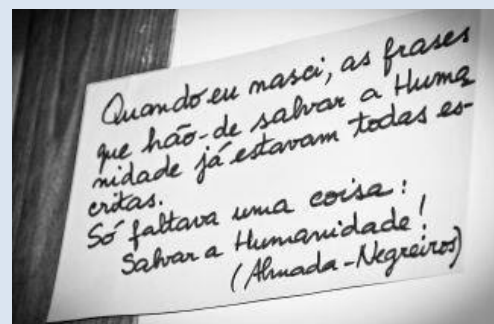 Quando eu nasci, as frases
que hão-de salvar a Huma
nidade já estavam todas es-
critas.
Só faltava uma coisa:
Salvar a Humanidade!
(Almada-Negreiros)